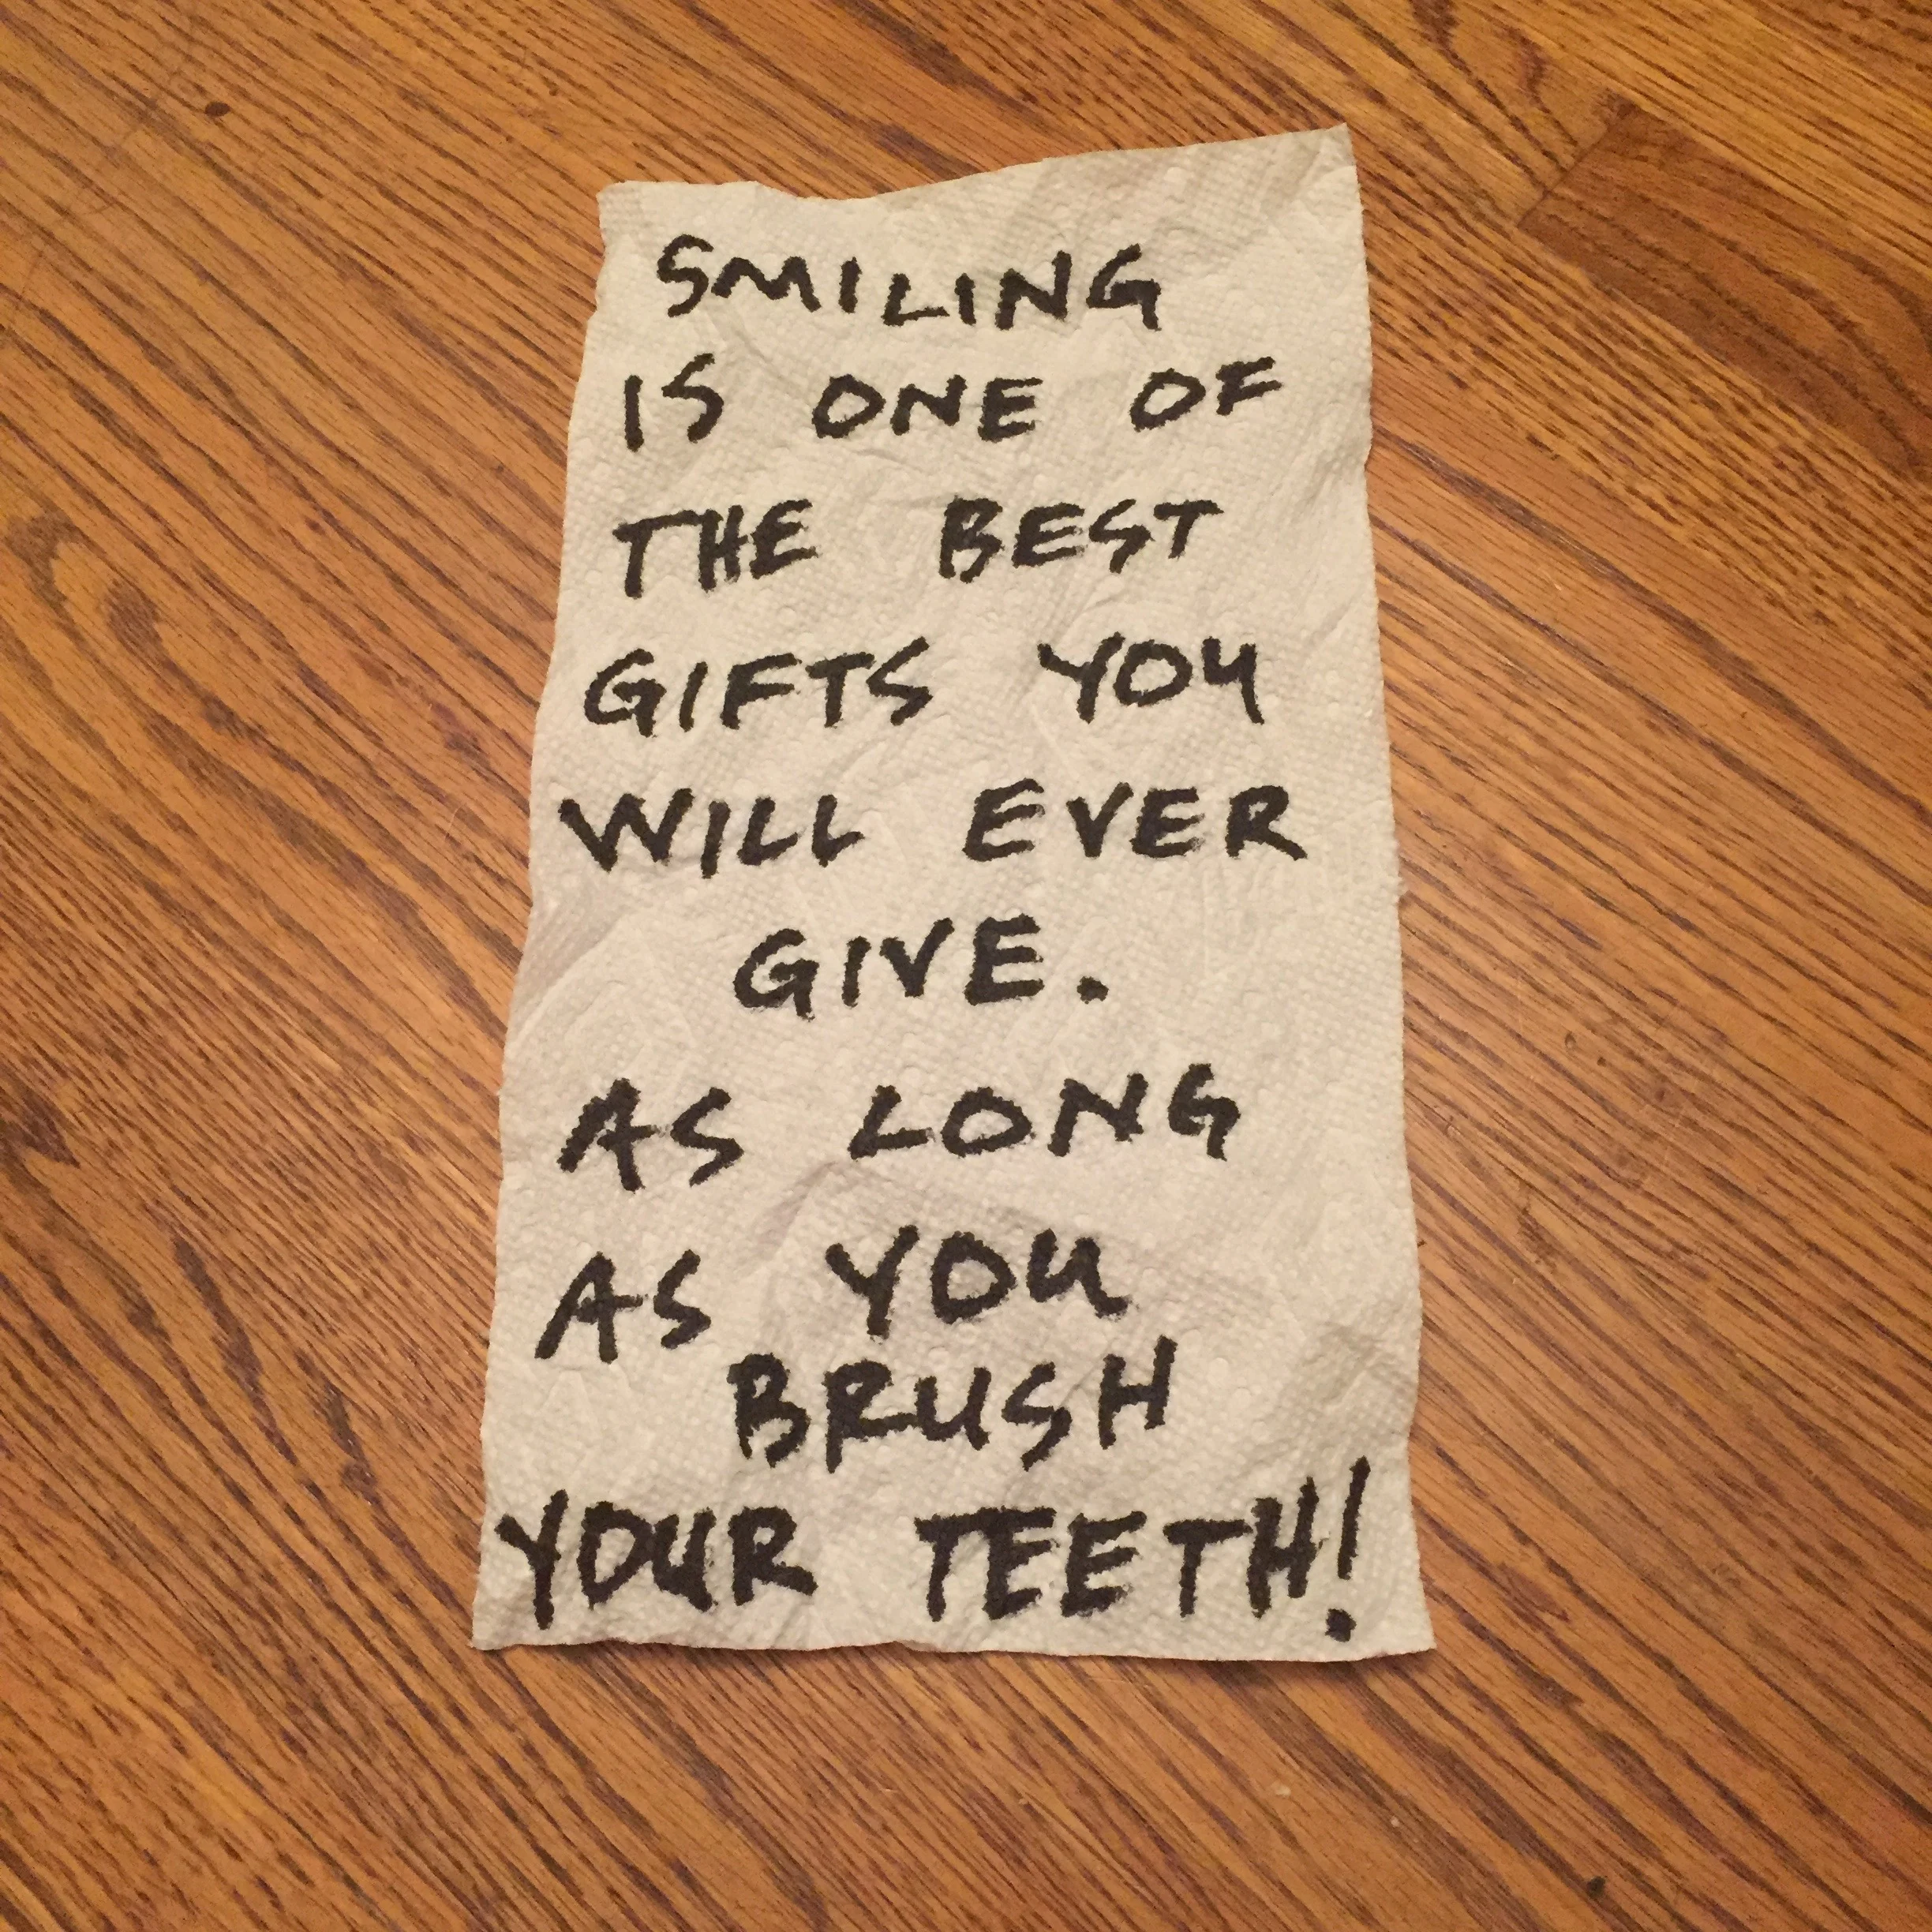 SMILING
IS ONE OF
THE BEST
GIFTS YOU
WILL EVER
GIVE.
AS LONG
AS YOU
BRUSH
YOUR TEETH!